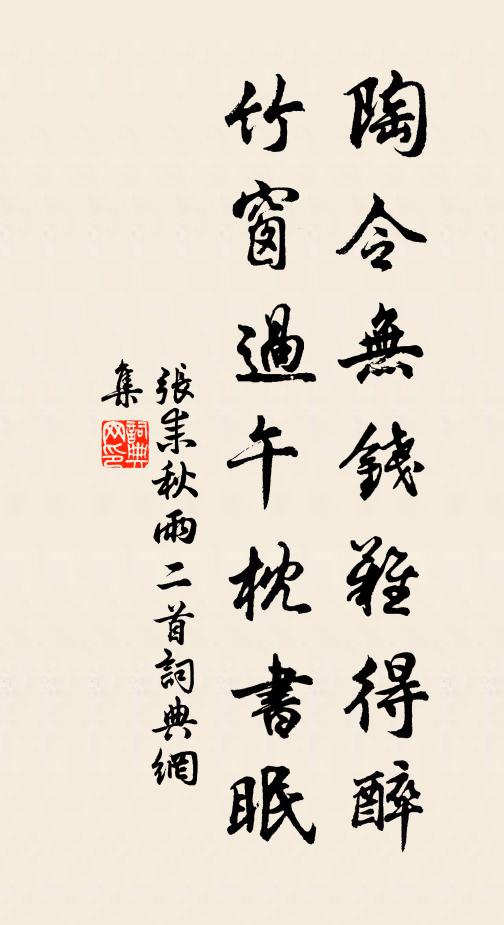 陶令無錢難得醉
竹窗過午枕書眠
張耒秋雨二首詞典網
集
詞典
网印